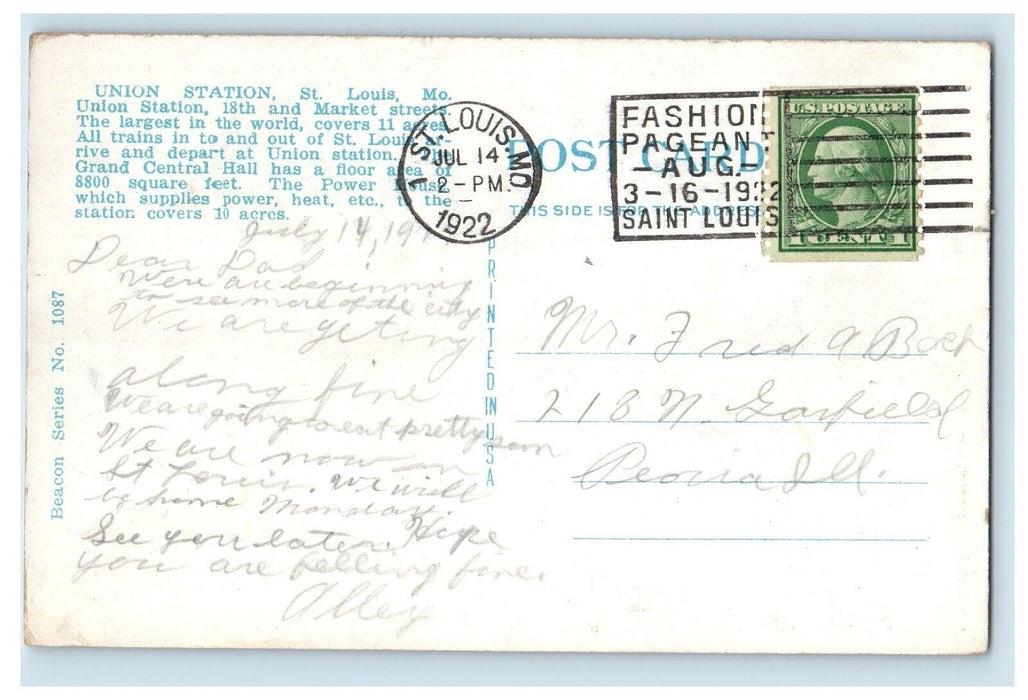 UNION STATION, St. Louis, Mo.
Union Station, 18th and Market streets.
The largest in the world, covers 11 acres.
All trains in to and out of St. Louis ar-
rive and depart at Union station.
Grand Central Hall has a floor area of
8800 square feet. The Power House
which supplies power, heat, etc., to the
station covers 10 acres.
ST. LOUIS, MO
JUL 14
2-PM
1922
POST CARD
THIS SIDE IS FOR THE ADDRESS
FASHION
PAGEANT
-AUG.-
3-16-1922
SAINT LOUIS
U.S. POSTAGE
1 CENT 1
PRINTED IN USA
Beacon Series No. 1087
July 14, 19
Dear Dad
Were are beginning
to see more of the city
We are geting
along fine
We are going to eat pretty soon
We are now in
St Louis. We will
be home Monday.
See you later. Hope
you are felling fine.
Alley
Mr. Fred A Boch
218 N. Garfield
Peoria Ill.